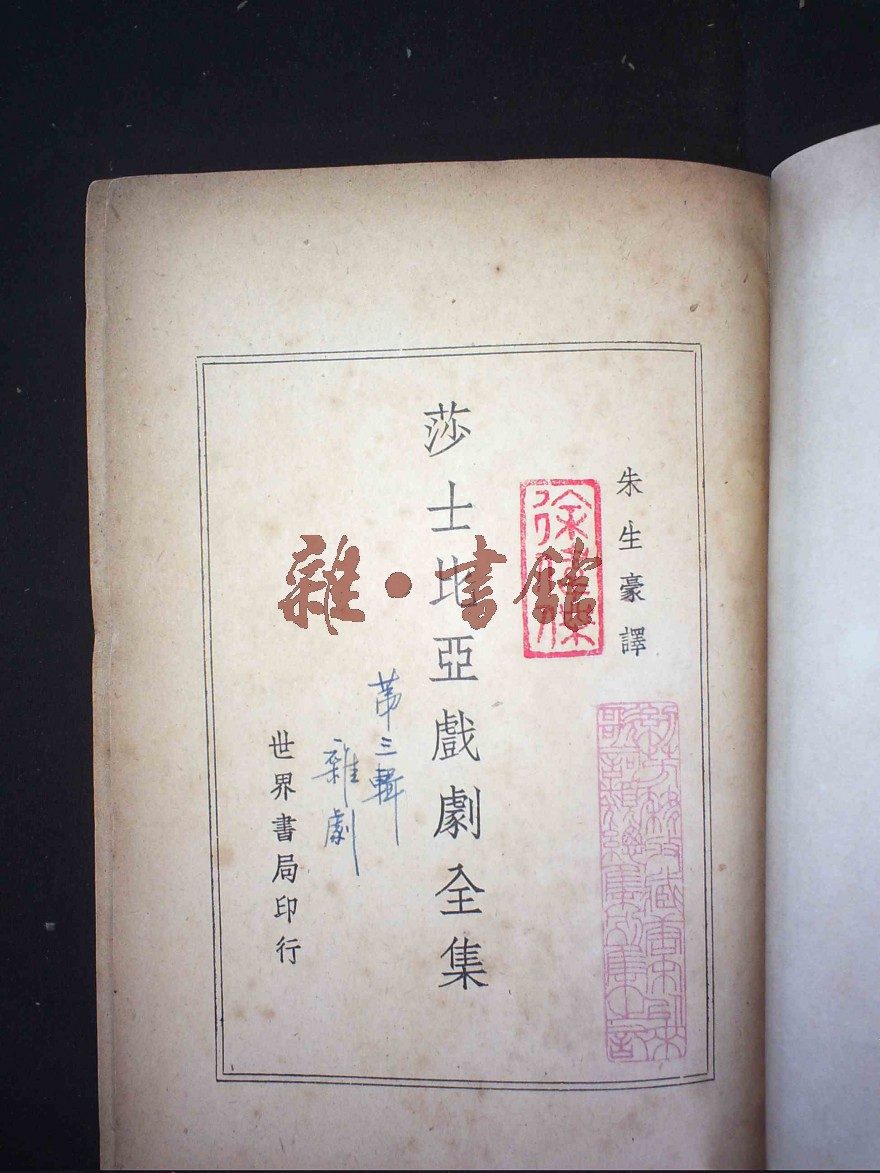 朱生豪譯
徐
莎士比亞戲劇全集
第三輯
雜劇
世界書局印行
雜·書館